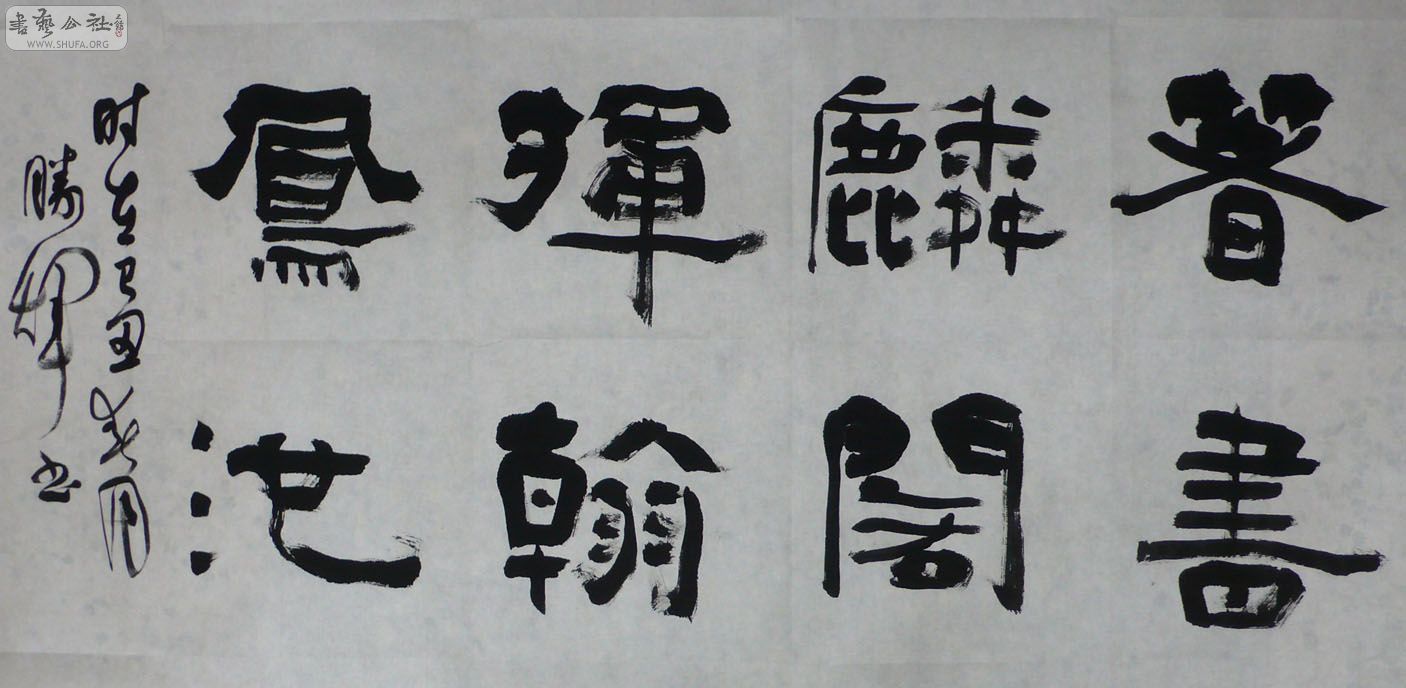 書
麟閣
揮翰
鳳池
时在己丑春月
勝輝书
書藝公社
WWW.SHUFA.ORG